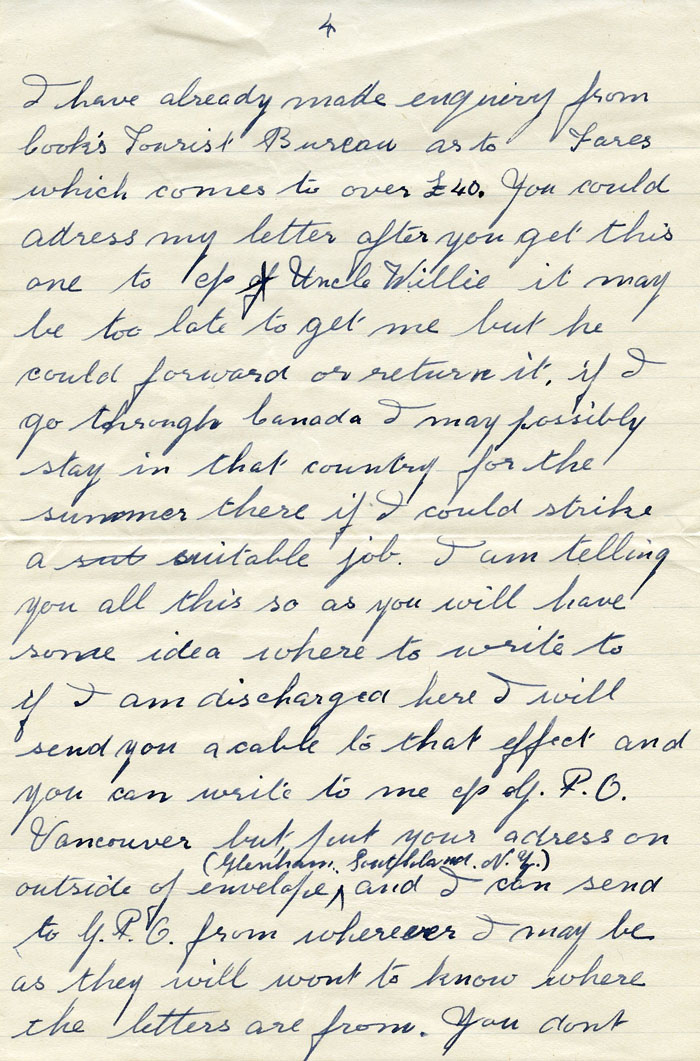 4
I have already made enquiry from
Cook's Tourist Bureau as to Fares
which comes to over £40. You could
adress my letter after you get this
one to c/o Uncle Willie it may
be too late to get me but he
could forward or return it, if I
go through Canada I may possibly
stay in that country for the
summer there if I could strike
a sut suitable job. I am telling
you all this so as you will have
some idea where to write to
if I am discharged here I will
send you a cable to that effect and
you can write to me c/o G. P. O.
Vancouver but put your adress on
(Glenham. Southland. N. Z.)
outside of envelope, and I can send
to G. P. O. from wherever I may be
as they will wont to know where
the letters are from. You dont